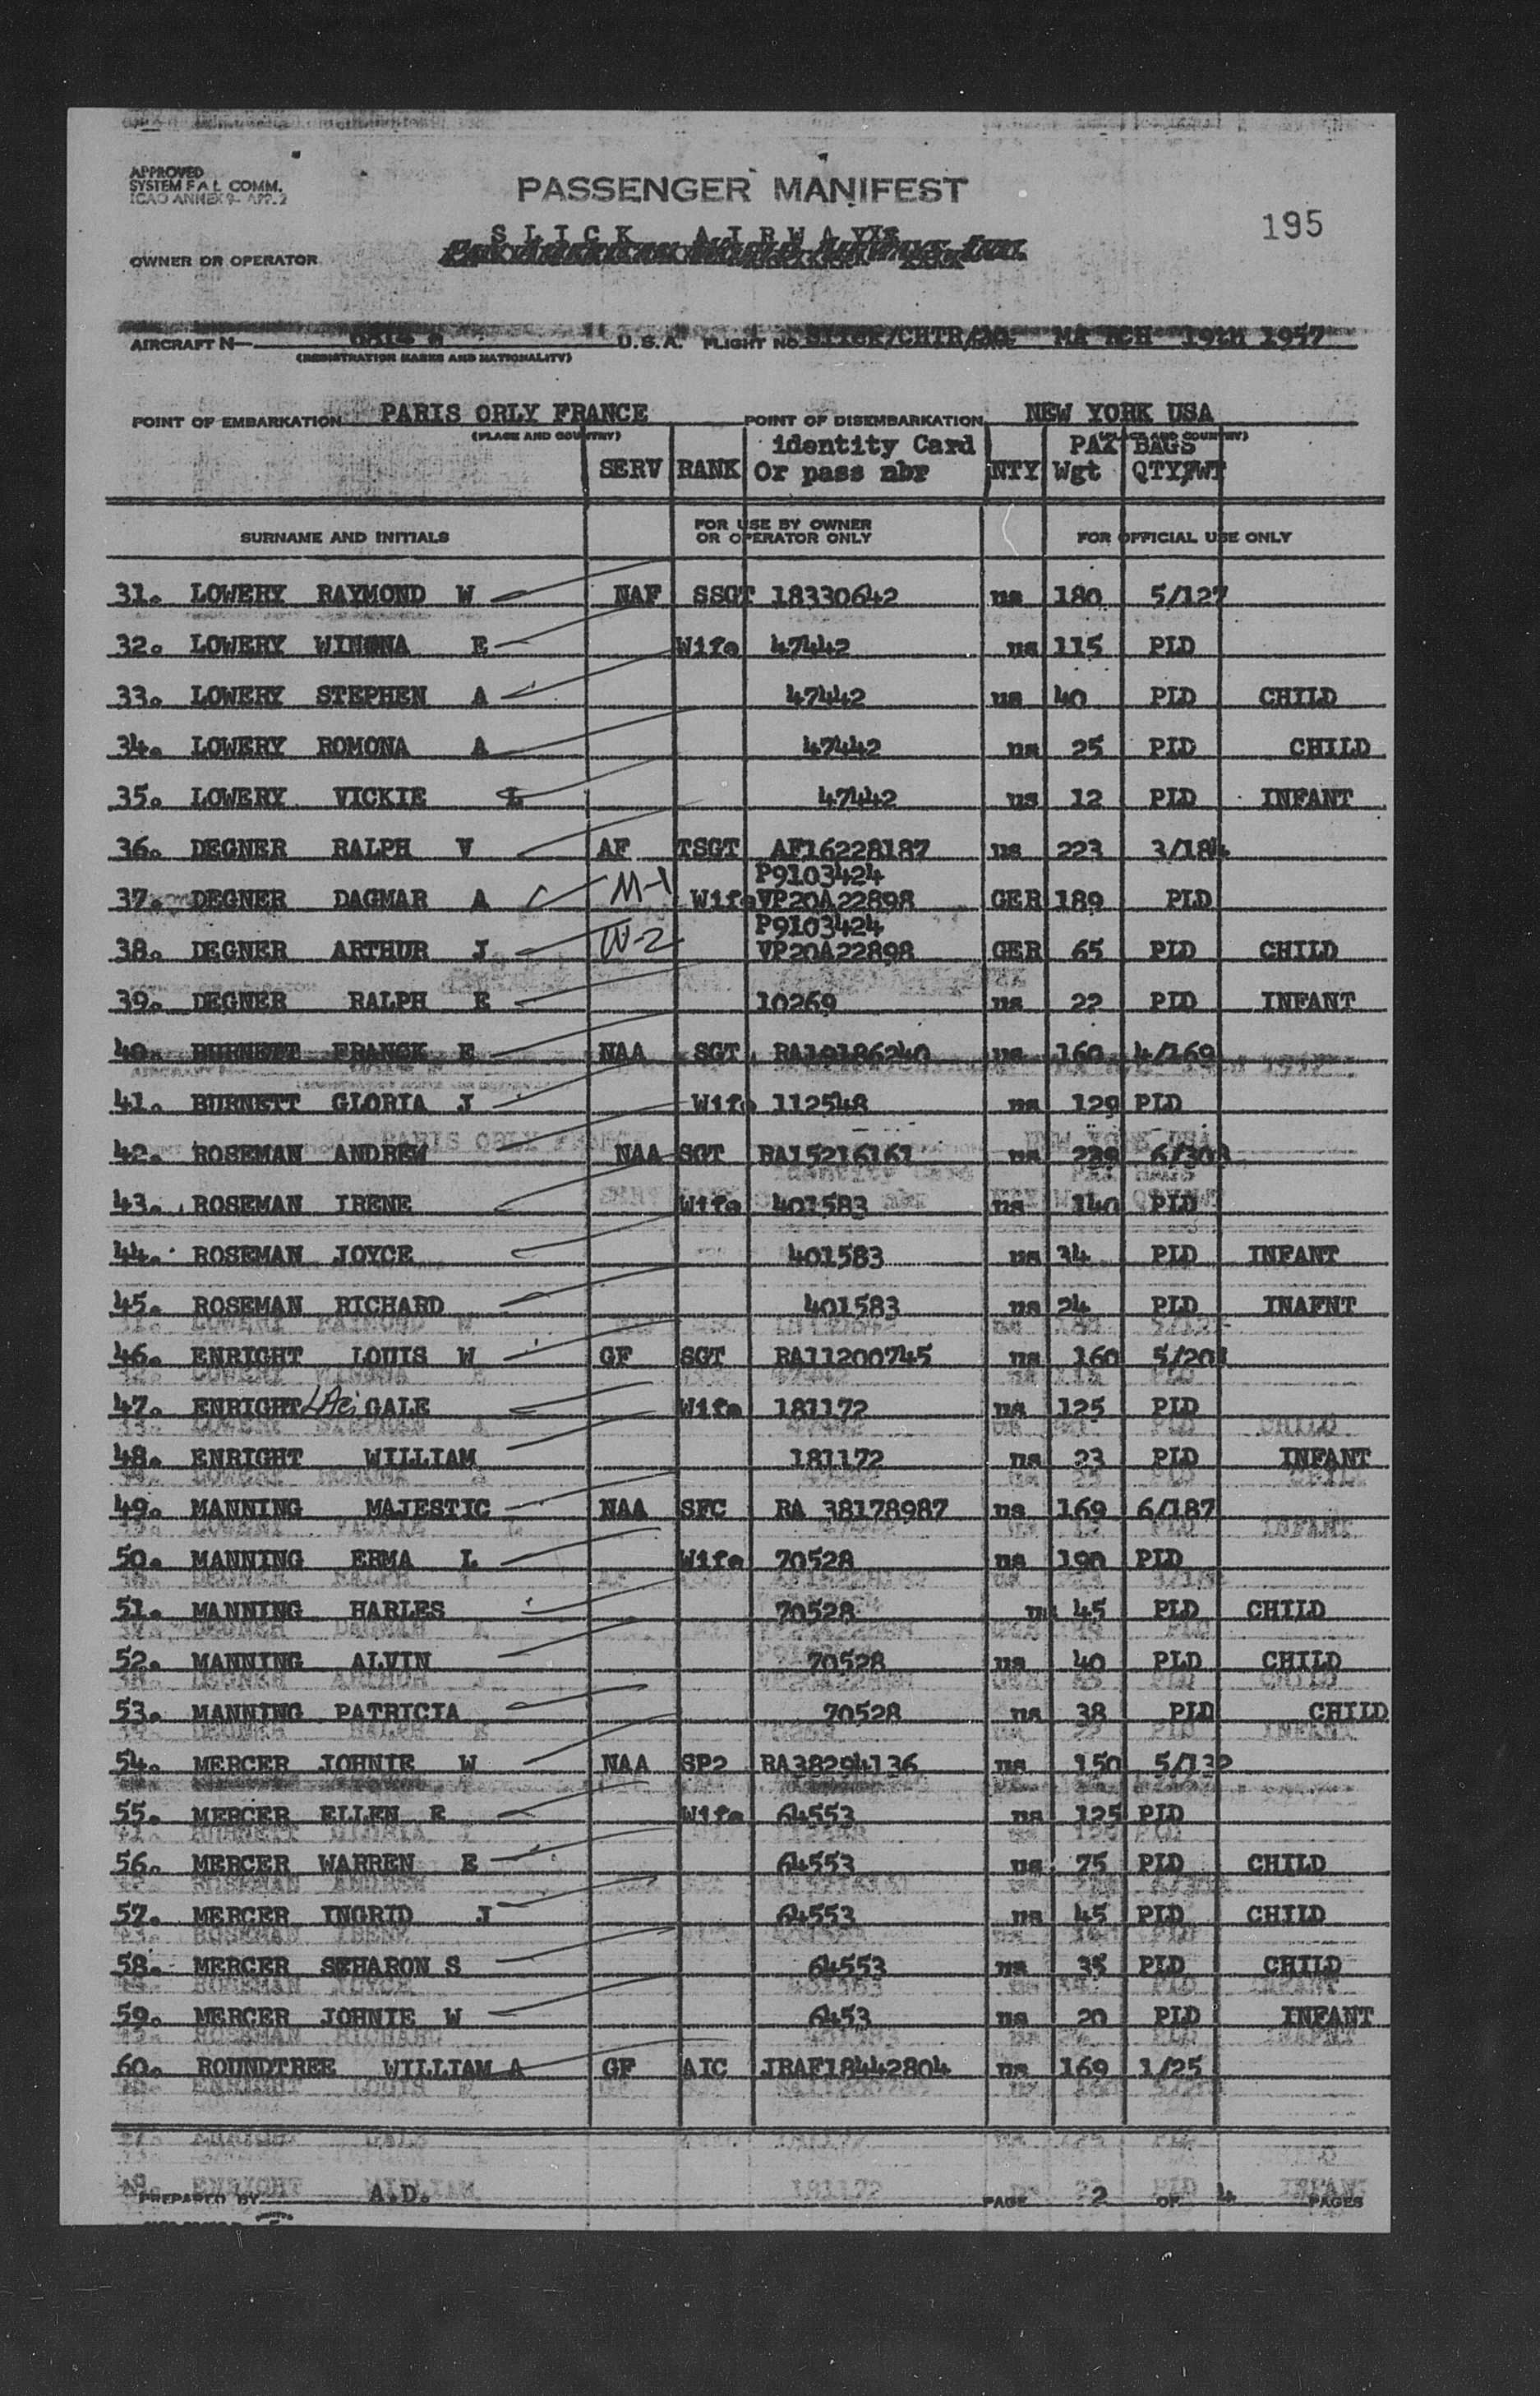 APPROVED
SYSTEM F A L COMM.
ICAO ANNEX 9- APP. 2
PASSENGER MANIFEST
195
SLICK AIRWAYS
OWNER OR OPERATOR
AIRCRAFT N U.S.A. FLIGHT NO MA RCH 19th 1957
(REGISTRATION MARKS AND NATIONALITY)
POINT OF EMBARKATION PARIS ORLY FRANCE POINT OF DISEMBARKATION NEW YORK USA
(PLACE AND COUNTRY) (PLACE AND COUNTRY)
identity Card PAX BAGS
SERV RANK Or pass nbr NTY Wgt QTY/WT
SURNAME AND INITIALS FOR USE BY OWNER OR OPERATOR ONLY FOR OFFICIAL USE ONLY
31. LOWERY RAYMOND W NAF SSGT 18330642 us 180 5/127
32. LOWERY WINONA E Wife 47442 us 115 PLD
33. LOWERY STEPHEN A 47442 us 40 PLD CHILD
34. LOWERY ROMONA A 47442 us 25 PLD CHILD
35. LOWERY VICKIE L 47442 us 12 PLD INFANT
36. DEGNER RALPH V AF TSGT AF16228187 us 223 3/184
P9103424
37. DEGNER DAGMAR A M-1 Wife VP20A22898 GER 189 PLD
P9103424
38. DEGNER ARTHUR J VP20A22898 GER 65 PLD CHILD
39. DEGNER RALPH E 10269 us 22 PLD INFANT
40. BURNETT FRANCK E NAA SGT RA19186240 us 160 4/169
41. BURNETT GLORIA J Wife 112548 us 129 PLD
42. ROSEMAN ANDREW NAA SGT RA15216161 us 239
43. ROSEMAN IRENE Wife 401583 us 140 PLD
44. ROSEMAN JOYCE 401583 us 34 PLD INFANT
45. ROSEMAN RICHARD 401583 us 24 PLD INAFNT
46. ENRIGHT LOUIS W GF SGT RA11200745 us 160
47. ENRIGHT GALE Wife 181172 us 125 PLD
48. ENRIGHT WILLIAM 181172 us 23 PLD INFANT
49. MANNING MAJESTIC NAA SFC RA 38178987 us 169 6/187
50. MANNING ERMA L Wife 70528 us 190 PLD
51. MANNING HARLES 70528 us 45 PLD CHILD
52. MANNING ALVIN 70528 us 40 PLD CHILD
53. MANNING PATRICIA 70528 us 38 PLD CHILD
54. MERCER JOHNIE W NAA SP2 RA38294136 us 150 5/132
55. MERCER ELLEN E Wife 64553 us 125 PLD
56. MERCER WARREN E 64553 us 75 PLD CHILD
57. MERCER INGRID J 64553 us 45 PLD CHILD
58. MERCER SEHARON S 64553 us 35 PLD CHILD
59. MERCER JOHNIE W 6453 us 20 PLD INFANT
60. ROUNDTREE WILLIAM A GF AIC JRAF18442804 us 169 1/25
PREPARED BY A.D. PAGE 2 OF 4 PAGES